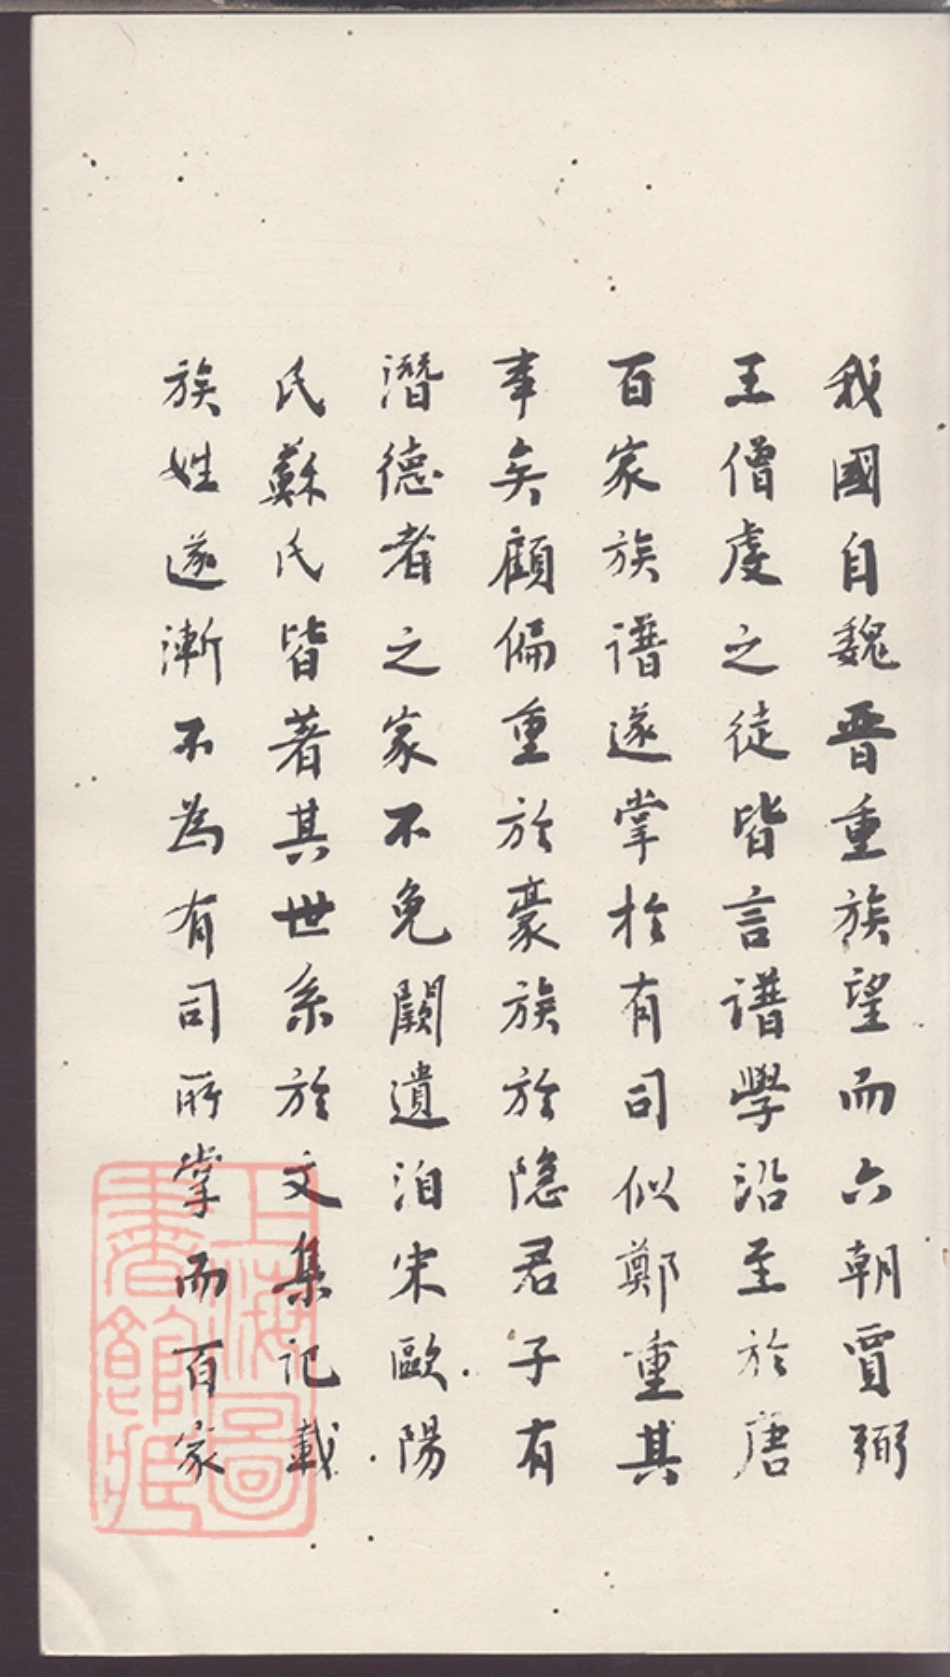 我國自魏晉重族望而六朝賈弼
王僧虔之徒皆言譜學沿至於唐
百家族譜遂掌於有司似鄭重其
事矣顧偏重於豪族於隱君子有
潛德者之家不免闕遺洎宋歐陽
氏蘇氏皆著其世系於文集記載
族姓遂漸不為有司所掌而百家
上海圖
書館藏